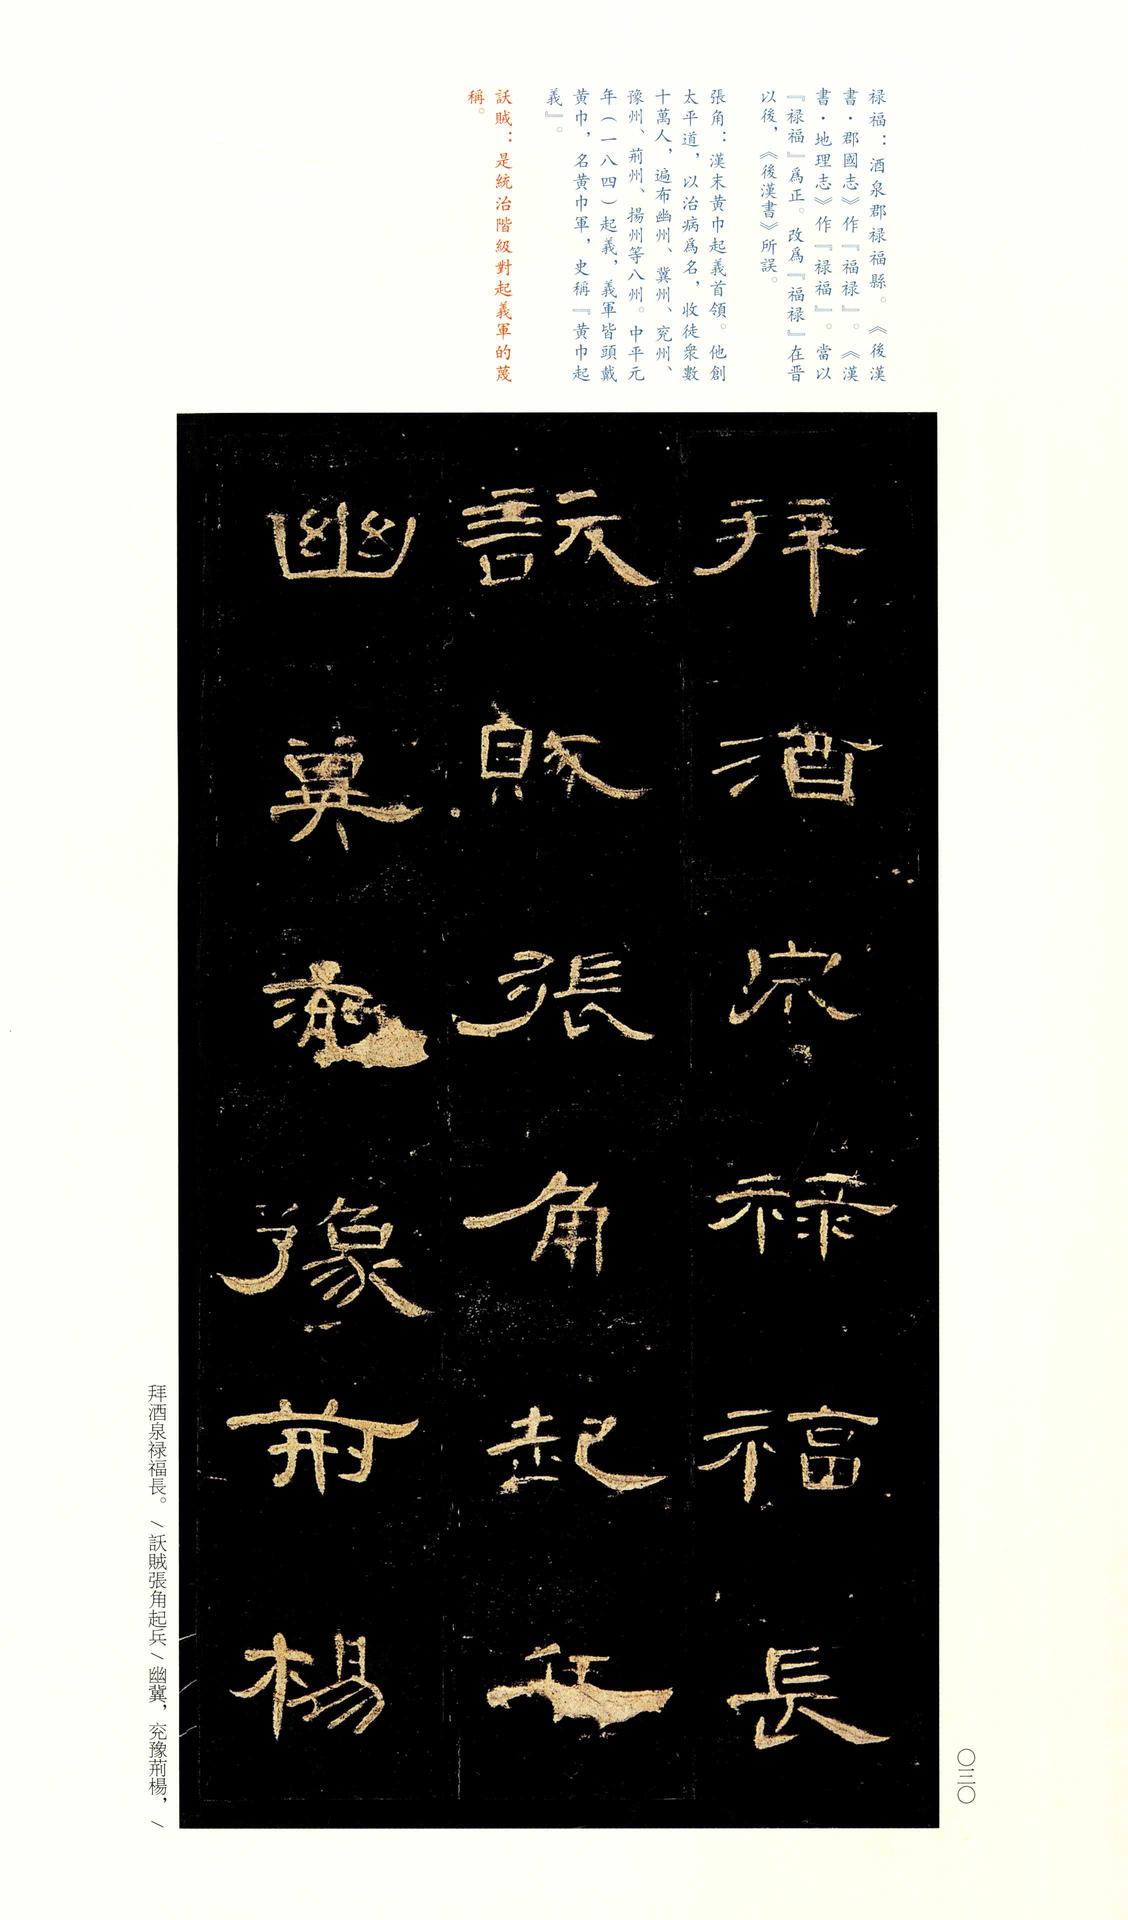 禄福：酒泉郡禄福縣。《後漢
書·郡國志》作『福禄』。《漢
書·地理志》作『禄福』。當以
『禄福』爲正。改爲『福禄』在晋
以後，《後漢書》所誤。
張角：漢末黄巾起義首領。他創
太平道，以治病爲名，收徒衆數
十萬人，遍布幽州、冀州、兖州、
豫州、荊州、揚州等八州。中平元
年（一八四）起義，義軍皆頭戴
黄巾，名黄巾軍，史稱『黄巾起
義』。
訞賊：是統治階級對起義軍的蔑
稱。
拜酒泉禄福長
訞賊張角起兵
幽冀兖豫荊楊
拜酒泉禄福長。/訞賊張角起兵/幽冀，兖豫荊楊，/
〇三〇